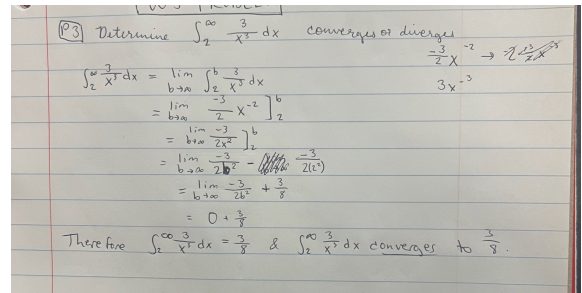 P3 Determine ∫₂^∞ 3/x³ dx converges or diverges
-3/2 x⁻² →
3x⁻³
∫₂^∞ 3/x³ dx = lim b→∞ ∫₂^b 3/x³ dx
= lim b→∞ -3/2 x⁻² ]₂^b
= lim b→∞ -3/2x² ]₂^b
= lim b→∞ -3/2b² - -3/2(2²)
= lim b→∞ -3/2b² + 3/8
= 0 + 3/8
Therefore ∫₂^∞ 3/x³ dx = 3/8 & ∫₂^∞ 3/x³ dx converges to 3/8.